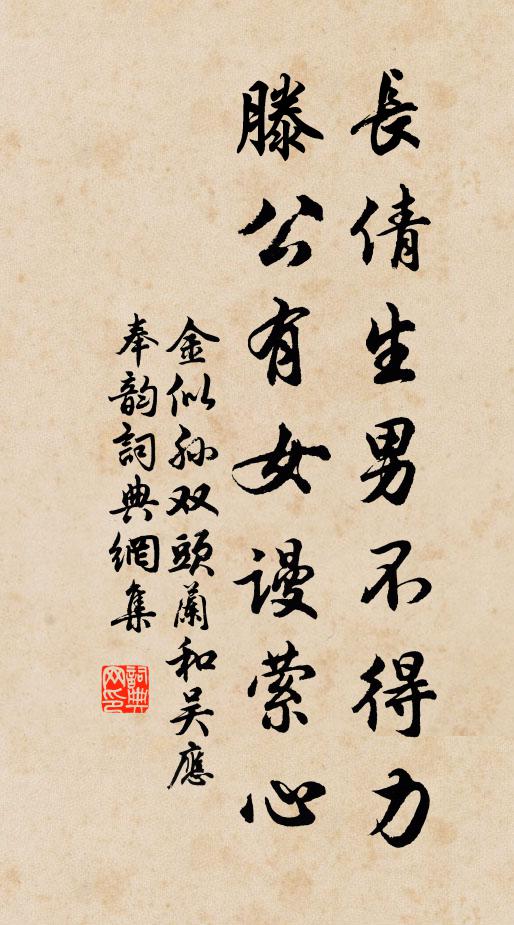 長倩生男不得力
滕公有女謾萦心
金似孙双頭蘭和吴應
奉韵詞典網集
詞典
网印